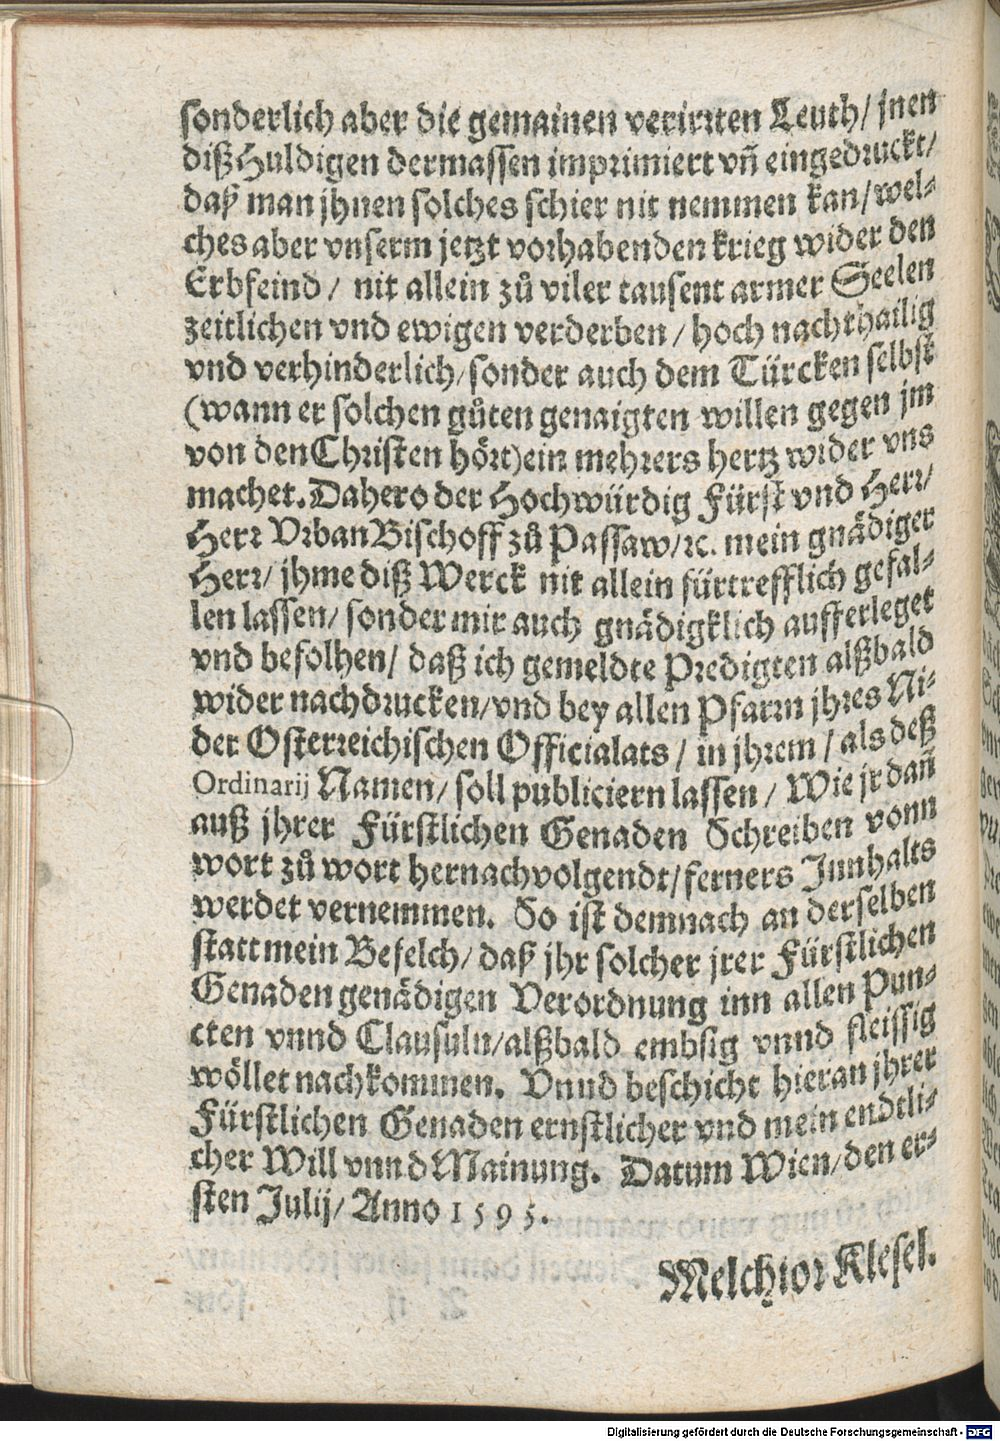 sonderlich aber die gemainen verirrten Leuth/ jnen
diß Huldigen dermassen imprimiert vñ eingedruckt/
daß man jhnen solches schier nit nemmen kan/ wel-
ches aber vnserm jetzt vorhabenden krieg wider den
Erbfeind/ nit allein zů viler tausent armer Seelen
zeitlichen vnd ewigen verderben / hoch nachthailig
vnd verhinderlich/ sonder auch dem Türcken selbst
(wann er solchen gůten genaigten willen gegen jm
von den Christen hört) ein mehrers hertz wider vns
machet. Dahero der Hochwürdig Fürst vnd Herr/
Herr Vrban Bischoff zů Passaw/ ꝛc. mein gnädiger
Herr/ jhme diß Werck nit allein fürtrefflich gefal-
len lassen/ sonder mir auch gnädigklich aufferleget
vnd befolhen/ daß ich gemeldte Predigten alßbald
wider nachdrucken/ vnd bey allen Pfarrn jhres Ni-
der Osterreichischen Officialats / in jhrem / als deß
Ordinarij Namen/ soll publiciern lassen / Wie jr dañ
auß jhrer Fürstlichen Genaden Schreiben vonn
wort zů wort hernachvolgendt/ ferners Innhalts
werdet vernemmen. So ist demnach an derselben
statt mein Befelch/ daß jhr solcher jrer Fürstlichen
Genaden genädigen Verordnung inn allen Pun-
cten vnnd Clausuln/ alßbald embsig vnnd fleissig
wöllet nachkommen. Vnnd beschicht hieran jhrer
Fürstlichen Genaden ernstlicher vnd mein endtli-
cher Will vnnd Mainung. Datum Wien/ den er-
sten Julij/ Anno 1595.
Melchior Klesel.
Digitalisierung gefördert durch die Deutsche Forschungsgemeinschaft - DFG